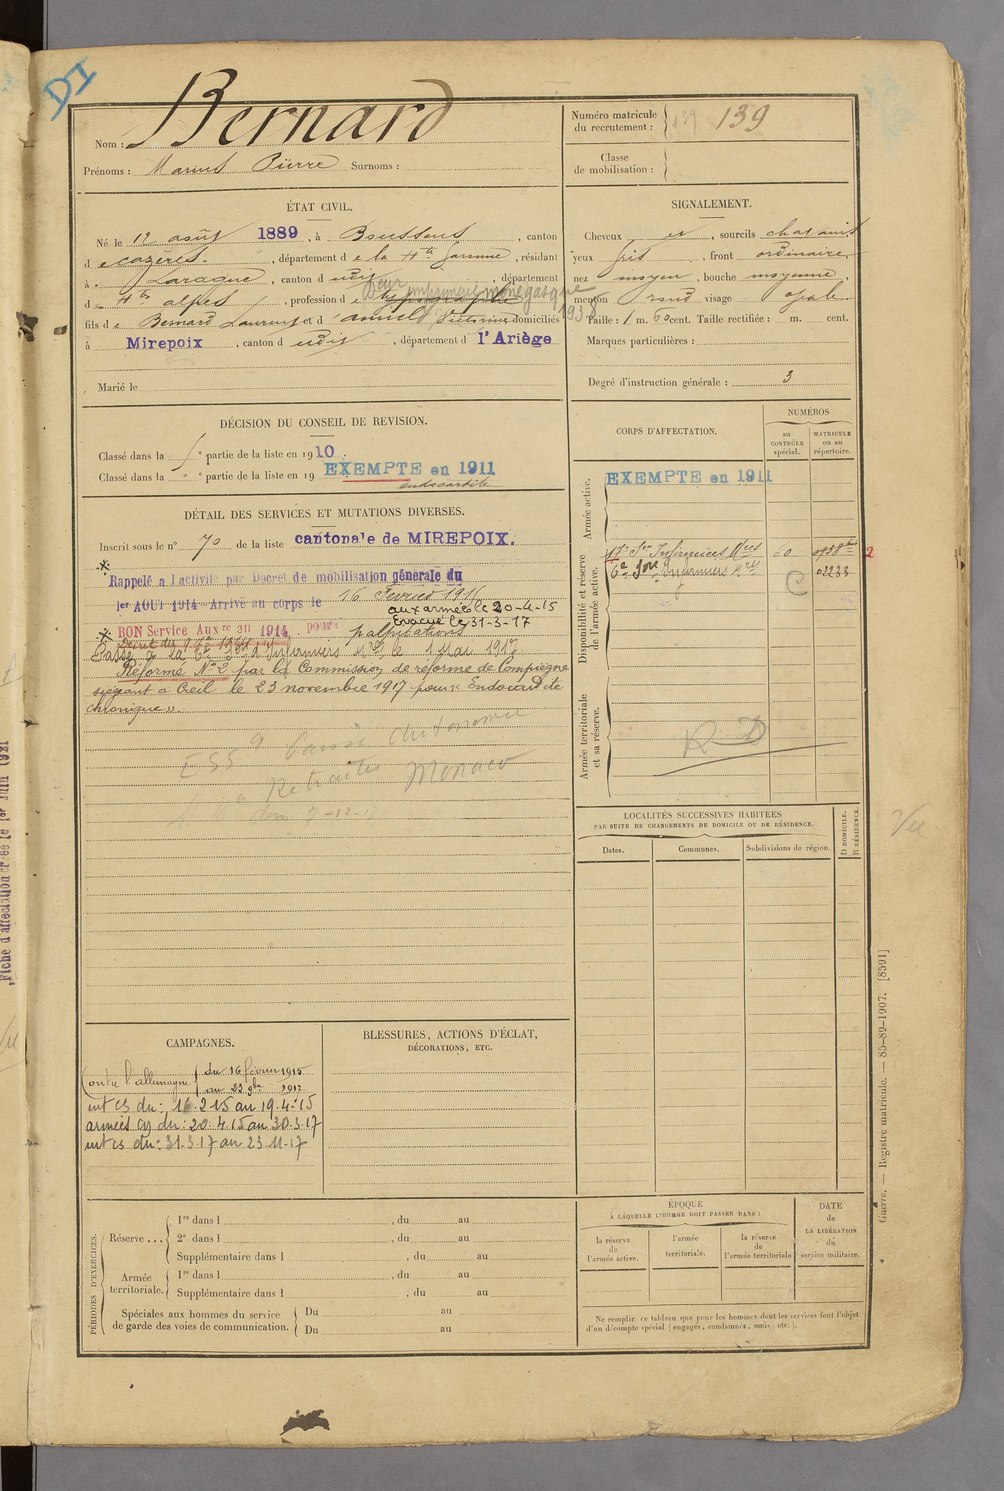 DI
Nom : Bernard
Prénoms : Marius Pierre Surnoms :
Numéro matricule du recrutement : 139 139
Classe de mobilisation :
ÉTAT CIVIL.
Né le 12 août 1889, à Boussens, canton
de Cazères, département de la Hte Garonne, résidant
à Laragne, canton d udit, département
des Htes Alpes, profession de typographe
Deur imprimerie monégasque
1938
fils de Bernard Laurent et d Victorine domiciliés
à Mirepoix, canton d udit, département d l'Ariège
Marié le
SIGNALEMENT.
Cheveux et, sourcils chatains
yeux gris, front ordinaire
nez moyen, bouche moyenne,
menton rond visage ovale
Taille : 1 m. 60 cent. Taille rectifiée : m. cent.
Marques particulières :
Degré d'instruction générale : 3
DÉCISION DU CONSEIL DE REVISION.
Classé dans la partie de la liste en 1910.
Classé dans la partie de la liste en 19 EXEMPTE en 1911
endocardite
DÉTAIL DES SERVICES ET MUTATIONS DIVERSES.
Inscrit sous le n° 70 de la liste cantonale de MIREPOIX.
Rappelé à l'activité par Décret de mobilisation générale du
1er AOUT 1914 Arrivé au corps le 16 Février 1915
aux armées le 20-4-15
Evacué le 31-3-17
BON Service Auxre au 1914 pour palpitations
Passé à la 6e Son d'Infirmiers Mres le 1 Mai 1917
Réformé N° 2 par la Commission de réforme de Compiègne
siégeant à Creil le 23 novembre 1917 pour « Endocardite
chronique ».
E559 Caisse Autonome
Retraites Monaco
dem 7-12-17
CORPS D'AFFECTATION.
NUMÉROS
au CONTRÔLE spécial.
MATRICULE ou au répertoire.
Armée active.
EXEMPTE en 1911
Disponibilité et réserve de l'armée active.
17e Son Infirmiers Mres
6e Son Infirmiers Mres 02233
C
2
Armée territoriale et sa réserve.
RD
LOCALITÉS SUCCESSIVES HABITÉES
PAR SUITE DE CHANGEMENTS DE DOMICILE OU DE RÉSIDENCE.
Dates.
Communes.
Subdivisions de région.
D DOMICILE.
R RÉSIDENCE.
Vu
CAMPAGNES.
Contre l'allemagne du 16 février 1915
au 22 9bre 1917
int cs du : 16.2.15 au 19.4.15
armées cg du : 20.4.15 au 30.3.17
int cs du : 31.3.17 au 23.11.17
BLESSURES, ACTIONS D'ÉCLAT,
DÉCORATIONS, ETC.
PÉRIODES D'EXERCICES.
Réserve ...
1re dans l , du au
2e dans l , du au
Supplémentaire dans l , du au
Armée territoriale.
1re dans l , du au
Supplémentaire dans l , du au
Spéciales aux hommes du service de garde des voies de communication.
Du au
Du au
ÉPOQUE
À LAQUELLE L'HOMME DOIT PASSER DANS :
la réserve de l'armée active.
l'armée territoriale.
la réserve de l'armée territoriale
DATE
de
LA LIBÉRATION
du
service militaire.
Ne remplir ce tableau que pour les hommes dont les services font l'objet
d'un décompte spécial (engagés, condamnés, omis, etc.).
Guerre. — Registre matricule. — 85-89-1907. [8591]
Fiche d'affectation créée le 1er Juin 1921
Vu